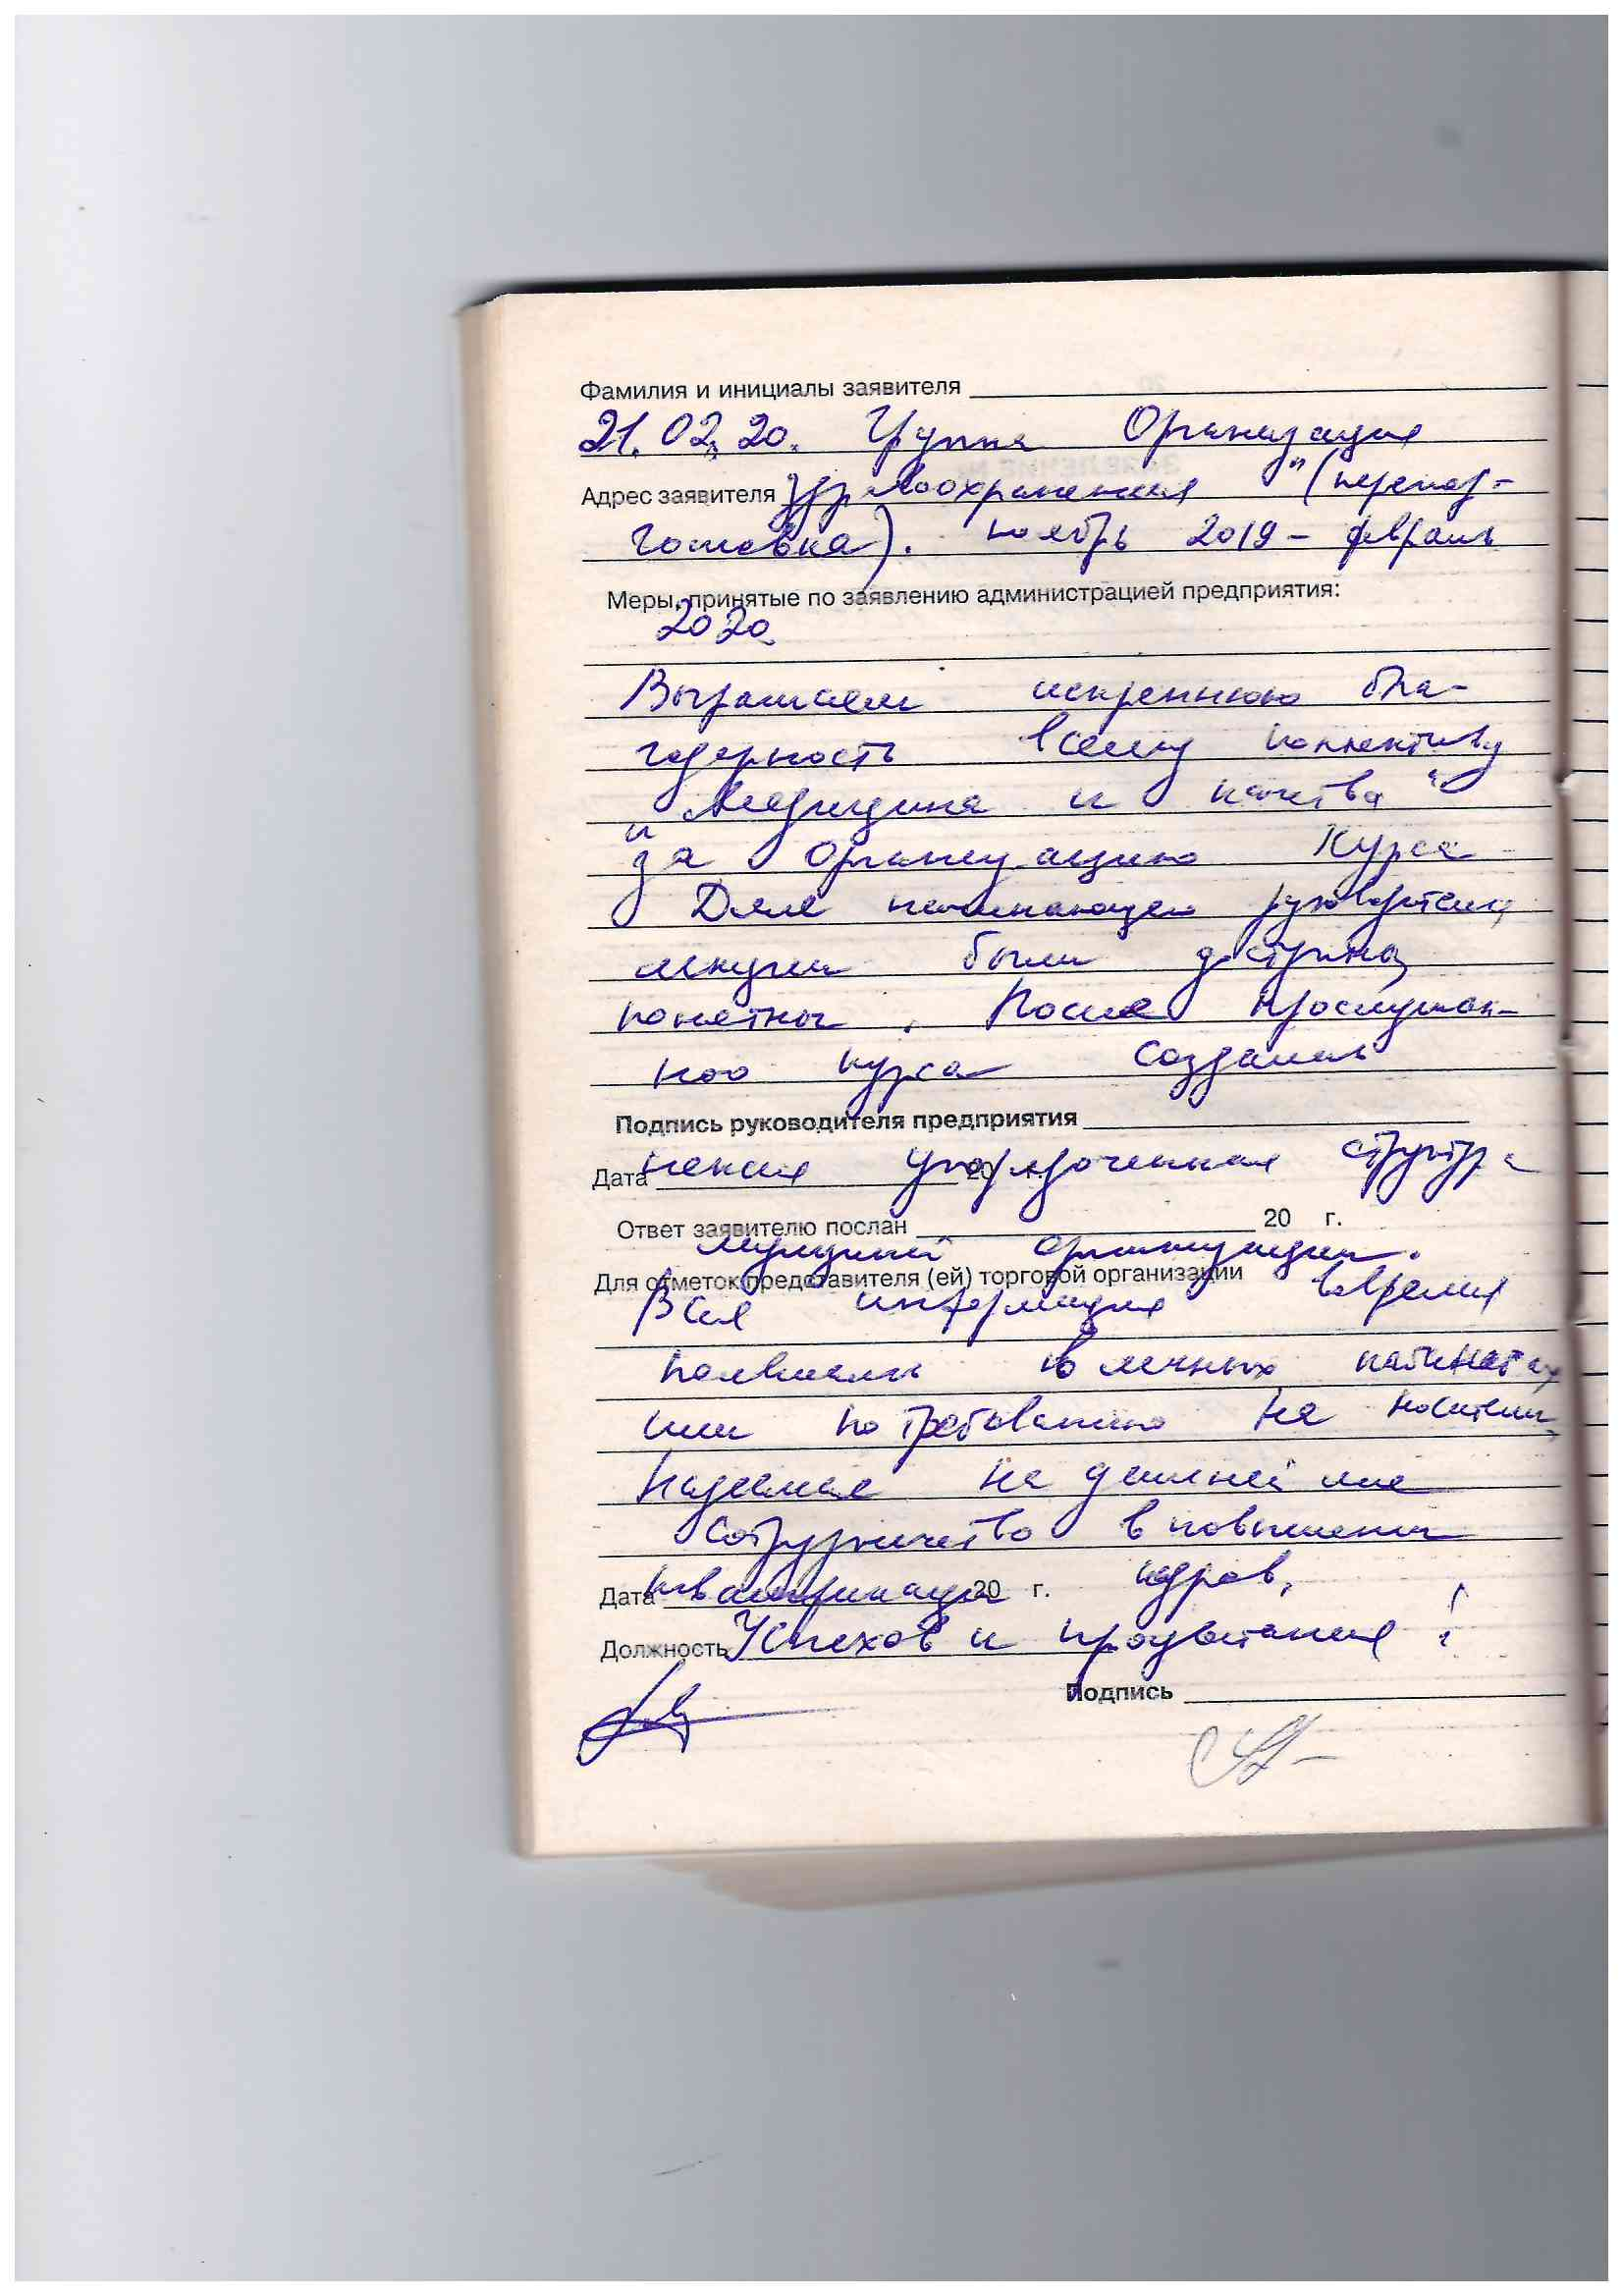 Фамилия и инициалы заявителя
21.02.20. Группа Организация
Адрес заявителя здравоохранения" (перепод-
готовка). ноябрь 2019 – февраль
Меры, принятые по заявлению администрацией предприятия:
2020
Выражаем искреннюю бла-
годарность всему коллективу
"Медицина и качества"
за организацию курса
Для начинающего руководителя
лекции были доступны,
понятны. После прослушан-
ного курса создалась
Подпись руководителя предприятия
Дата некая упорядоченная структура
20 г.
Ответ заявителю послан 20 г.
организации.
Для отметок представителя (ей) торговой организации
Вся информация вовремя
появилась в личных кабинетах
или по требованию на носители
Надеемся на дальнейшее
сотрудничество в повышении
Дата квалификации 20 г. кадров,
Должность Успехов и процветания!
Подпись